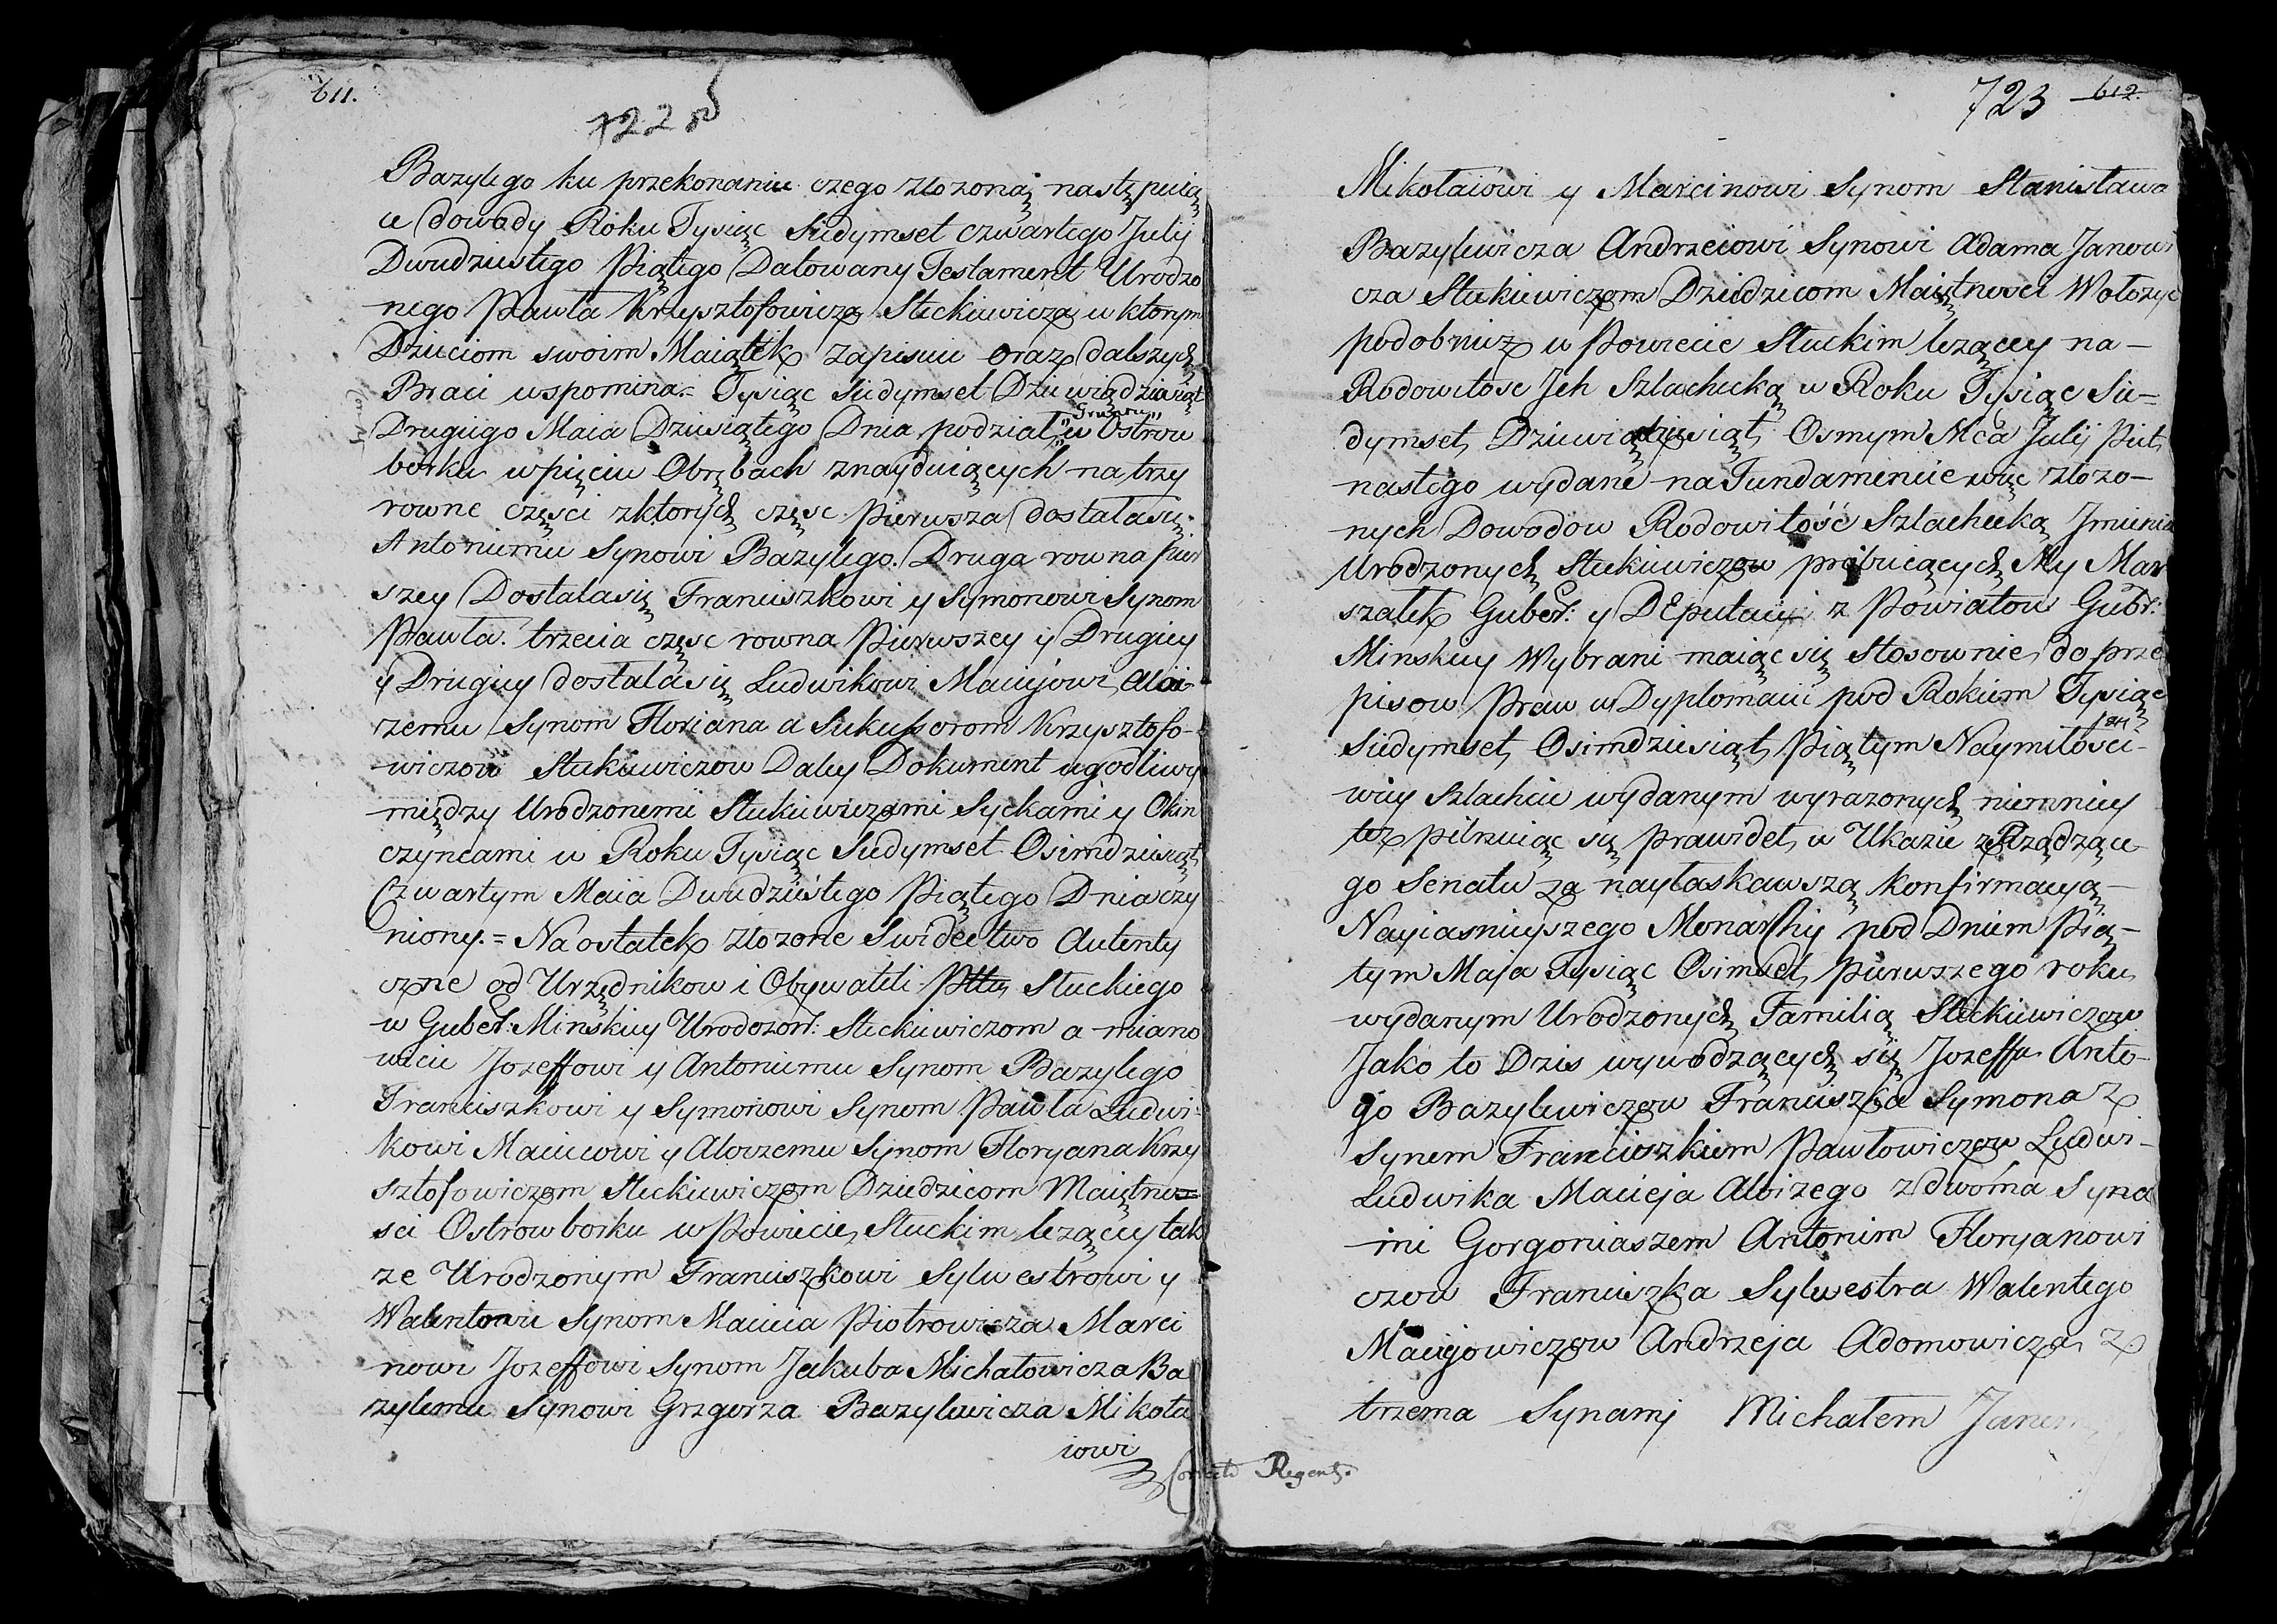 611.
722
Bazylego ku przekonaniu czego złozoną następuią
ce dowody Roku Tysiąc Siedymset czwartego Julij
Dwudziestego Piątego Datowany Testament Urodzo
nego Pawła Krzysztofowicza Steckiewicza w ktorym
Dzieciom swoim Maiątek zapisuie oraz dalszych
Braci wspomina = Tysiąc Siedymset Dziewiądziesiąt
Drugiego Maia Dziesiątego Dnia podział Gruntu w Ostrow
borku w pięciu Obrębach znayduiących na trzy
rowne częsci z ktorych częsc pierwsza dostałasię
Antoniemu Synowi Bazylego. Druga rowna pier
szey Dostałasię Franciszkowi y Symonowi Synom
Pawła. trzecia częsc rowna Pierwszey y Drugiey
y Drugiey dostałasię Ludwikowi Maciejowi Aloi-
zemu Synom Floriana a Sukcessorom Krzysztofo-
wiczow Stekiewiczow Daley Dokument ugodliwy
między Urodzonemi Stekiewiczami Syckami y Okin
czyncami w Roku Tysiąc Siedymset Osimdziesiąt
Czwartym Maia Dwudziestego Piątego Dnia czy
niony. = Na ostatek złozone Swidectwo Autenty
czne od Urzędnikow i Obywateli Pttu Słuckiego
w Guber: Minskiey Urodozon: Steckiewiczom a miano
wicie Jozeffowi y Antoniemu Synom Bazylego
Franciszkowi y Symonowi Synom Pawła Ludwi-
kowi Macieiowi y Aloizemu Synom Floryana Krzy
sztofowiczom Steckiewiczom Dziedzicom Maiętno=
sci Ostrowborku w Powiecie Słuckim lezącey tak
ze Urodzonym Franciszkowi Sylwestrowi y
Walentemu Synom Macieia Piotrowicza Marci
nowi Jozeffowi Synom Jakuba Michałowicza Ba
zylemu Synowi Grzgorza Bazylewicza Mikoła
iowi
Regent.
723 612.
Mikołaiowi y Marcinowi Synom Stanisława
Bazylewicza Andrzeiowi Synowi Adama Janowi
cza Stekiewiczom Dziedzicom Maiętnosci Wołozyc
podobniez w Powiecie Słuckim lezącey na-
Rodowitosc Jch Szlachecką w Roku Tysiąc Sie=
dymset Dziewiądziesiąt Osmym Mca Julij Piet
nastego wydane na Fundamencie więc złozo-
nych Dowodow Rodowitość Szlachecką Jmienia
Urodzonych Stekiewiczow probuiących My Mar
szałek Guber: y DEputaci z Powiatow Gubr:
Minskiey Wybrani maiąc się stosownie do prze
pisow Praw w Dyplomacie pod Rokiem Tysiąc
Siedymset Osimdziesiąt Piątym Naymiłości-
wiey Szlachcie wydanym wyrazonych niemniey
tez pilnuiąc się prawideł w Ukazie z Rządzące
go Senatu za nayłaskawszą konfirmacyą-
Nayiasnieyszego Monarchij pod Dniem Pią-
tym Maja Tysiąc Osimset pierwszego roku
wydanym Urodzonych Familią Steckiewiczow
Jako to Dzis wywodzących się Jozeffa Anto-
go Bazylewiczow Franciszka Symona z
Synem Franciszkiem Pawłowiczow Ludwi-
Ludwika Macieja Aloizego z dwoma Syna
mi Gorgoniaszem Antonim Floryanowi
czow Franciszka Sylwestra Walentego
Maciejowiczow Andrzeja Adomowicza z
trzema Synami Michałem Janem